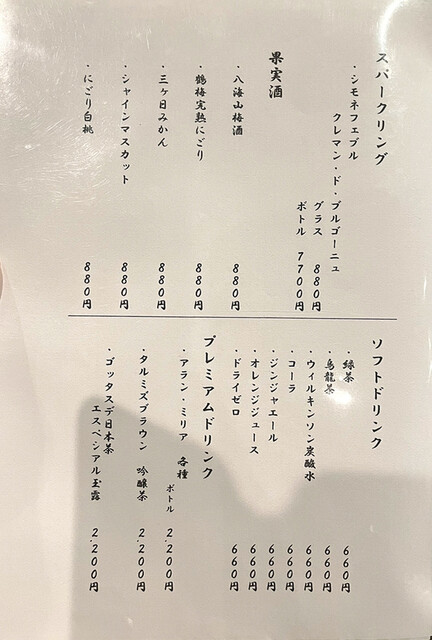 スパークリング
・シモネフェブル
クレマン・ド・ブルゴーニュ
グラス 880円
ボトル 7700円
果実酒
・八海山梅酒 880円
・鶴梅完熟にごり 880円
・三ヶ日みかん 880円
・シャインマスカット 880円
・にごり白桃 880円
ソフトドリンク
・緑茶 660円
・烏龍茶 660円
・ウィルキンソン炭酸水 660円
・コーラ 660円
・ジンジャエール 660円
・オレンジジュース 660円
・ドライゼロ 660円
プレミアムドリンク
・アラン・ミリア 各種 ボトル 2.200円
・タルミズブラウン 吟醸茶 2.200円
・ゴッタステ日本茶
エスペシアル玉露 2.200円